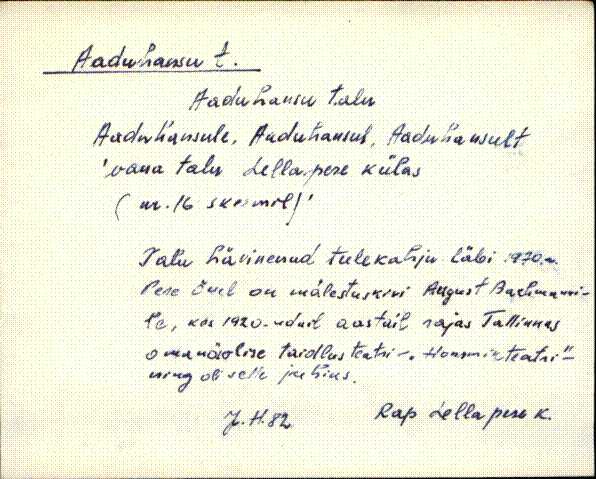 Aaduhansu t.
Aaduhansu talu
Aaduhansule, Aaduhansul, Aaduhansult
'vana talu Lellapere külas
(nr. 16 skeemil)'
Talu hävinenud tulekahju läbi 1970.a.
Pere õuel on mälestuskivi August Bachmanni-
le, kes 1920-ndail aastail rajas Tallinnas
omanäolise taidlusteatri - "Hommikteatri"
ning oli selle juhiks.
J.H. 82 Rap Lellapere k.